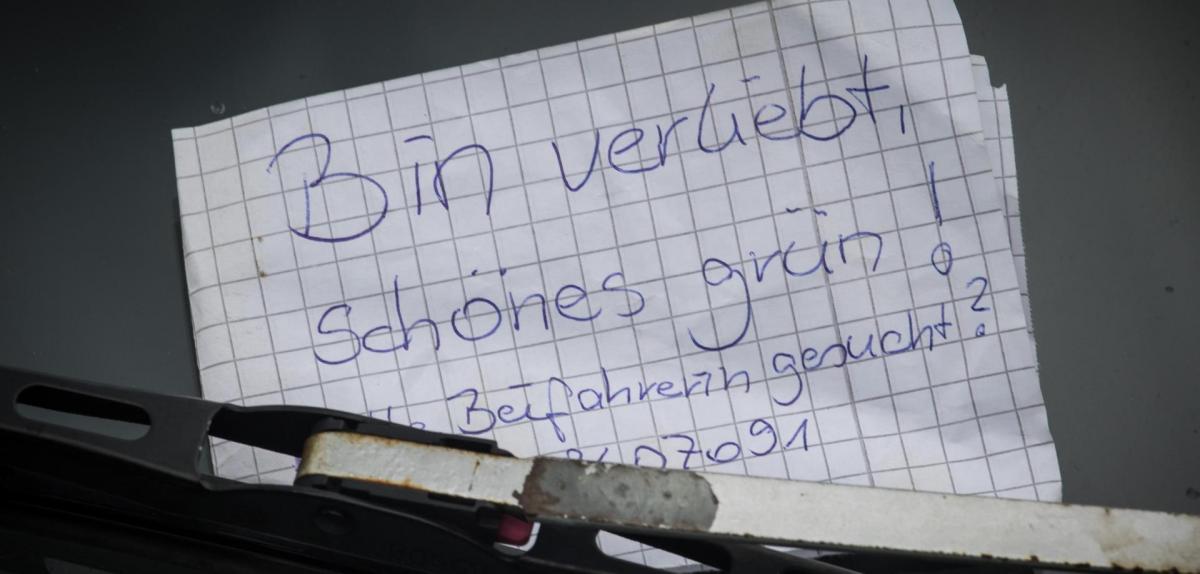 Bin verliebt,
schönes grün!
Beifahrerin gesucht?
07091